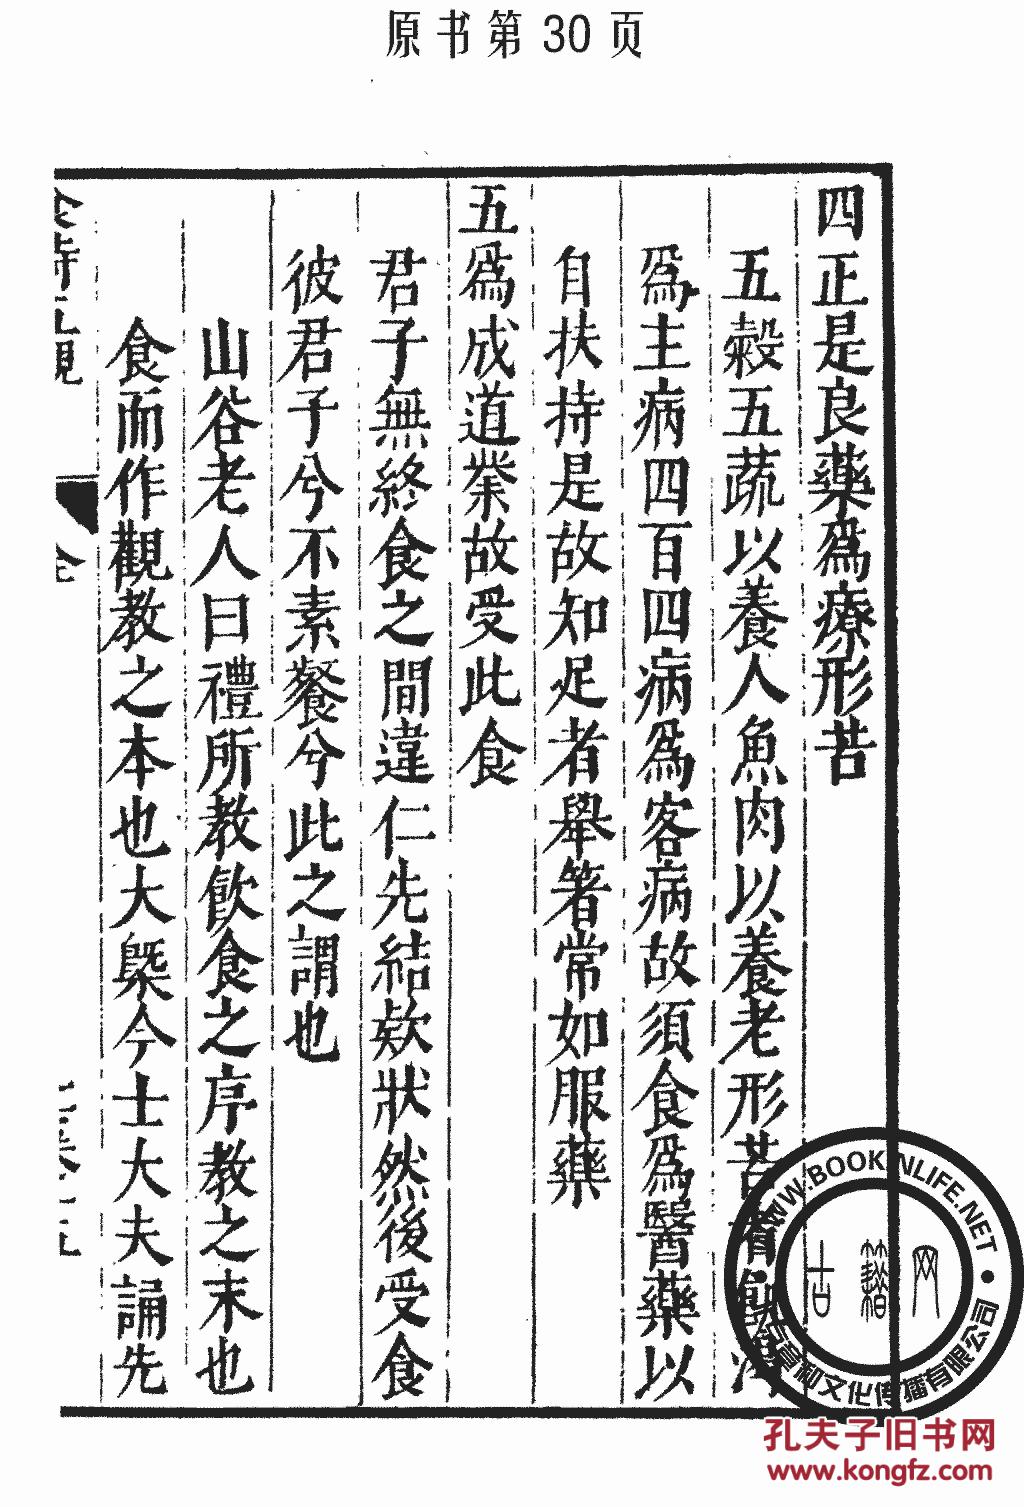 原书第30页
四正是良藥爲療形苦
五穀五蔬以養人魚肉以養老形苦者飢渴
爲主病四百四病爲客病故須食爲醫藥以
自扶持是故知足者舉箸常如服藥
五爲成道業故受此食
君子無終食之間違仁先結欵狀然後受食
彼君子兮不素餐兮此之謂也
山谷老人曰禮所教飲食之序教之末也
食而作觀教之本也大槩今士大夫誦先
WWW.BOOKINLIFE.NET
文化传播有限公司
古籍网
孔夫子旧书网
www.kongfz.com